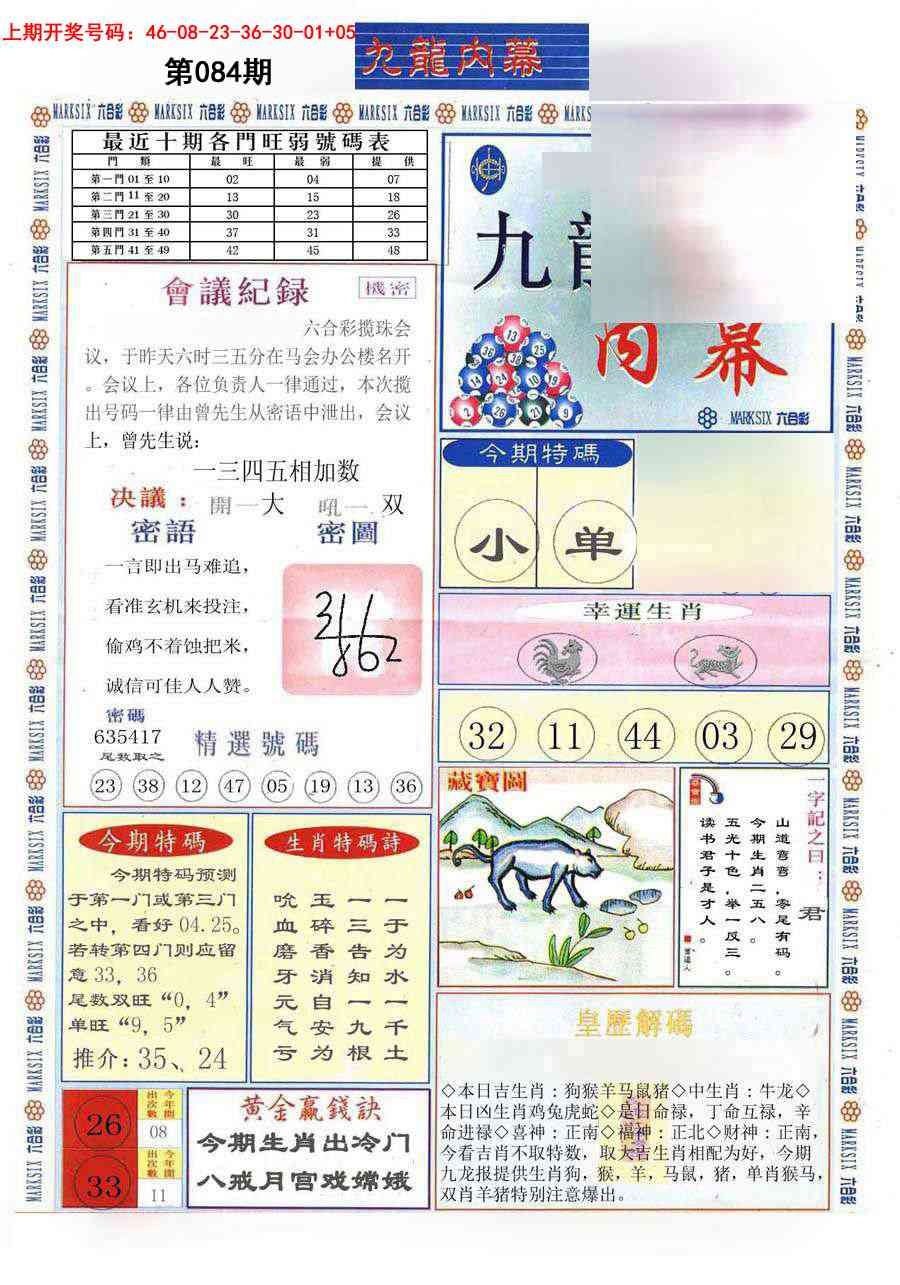 上期开奖号码：46-08-23-36-30-01+05
第084期
九龍内幕
MARKSIX 六合彩 MARKSIX 六合彩 MARKSIX 六合彩 MARKSIX 六合彩 MARKSIX 六合彩
最近十期各門旺弱號碼表
門 類 最 旺 最 弱 提 供
第一門 01 至 10 02 04 07
第二門 11 至 20 13 15 18
第三門 21 至 30 30 23 26
第四門 31 至 40 37 31 33
第五門 41 至 49 42 45 48
九
内幕
MARKSIX 六合彩
會議紀録 機密
六合彩揽珠会
议，于昨天六时三五分在马会办公楼名开
。会议上，各位负责人一律通过，本次揽
出号码一律由曾先生从密语中泄出，会议
上，曾先生说：
一三四五相加数
决議： 開一大 吼一 双
密語 密圖
一言即出马难追，
看准玄机来投注，
偷鸡不着蚀把米，
诚信可佳人人赞。
密碼
635417
尾数取之
精選號碼
23 38 12 47 05 19 13 36
今期特碼
小 单
幸運生肖
32 11 44 03 29
藏寶圖
一字記之曰：君
山道弯弯，零尾有码。
今期生肖二五八。
五光十色，举一反三。
读书君子是才人。
今期特碼
今期特码预测
于第一门或第三门
之中，看好 04.25。
若转第四门则应留
意 33，36
尾数双旺“0，4”
单旺“9，5”
推介：35、24
生肖特碼詩
一于为水一千土
一三告知一九根
玉碎香消自安为
吮血磨牙元气亏
26 今年開出次數 08
33 今年開出次數 11
黄金赢錢訣
今期生肖出冷门
八戒月宫戏嫦娥
皇歷解碼
◇本日吉生肖：狗猴羊马鼠猪◇中生肖：牛龙◇
本日凶生肖鸡兔虎蛇◇是日命禄，丁命互禄，辛
命进禄◇喜神：正南◇福神：正北◇财神：正南，
今看吉肖不取特数，取大吉生肖相配为好，今期
九龙报提供生肖狗，猴，羊，马鼠，猪，单肖猴马，
双肖羊猪特别注意爆出。